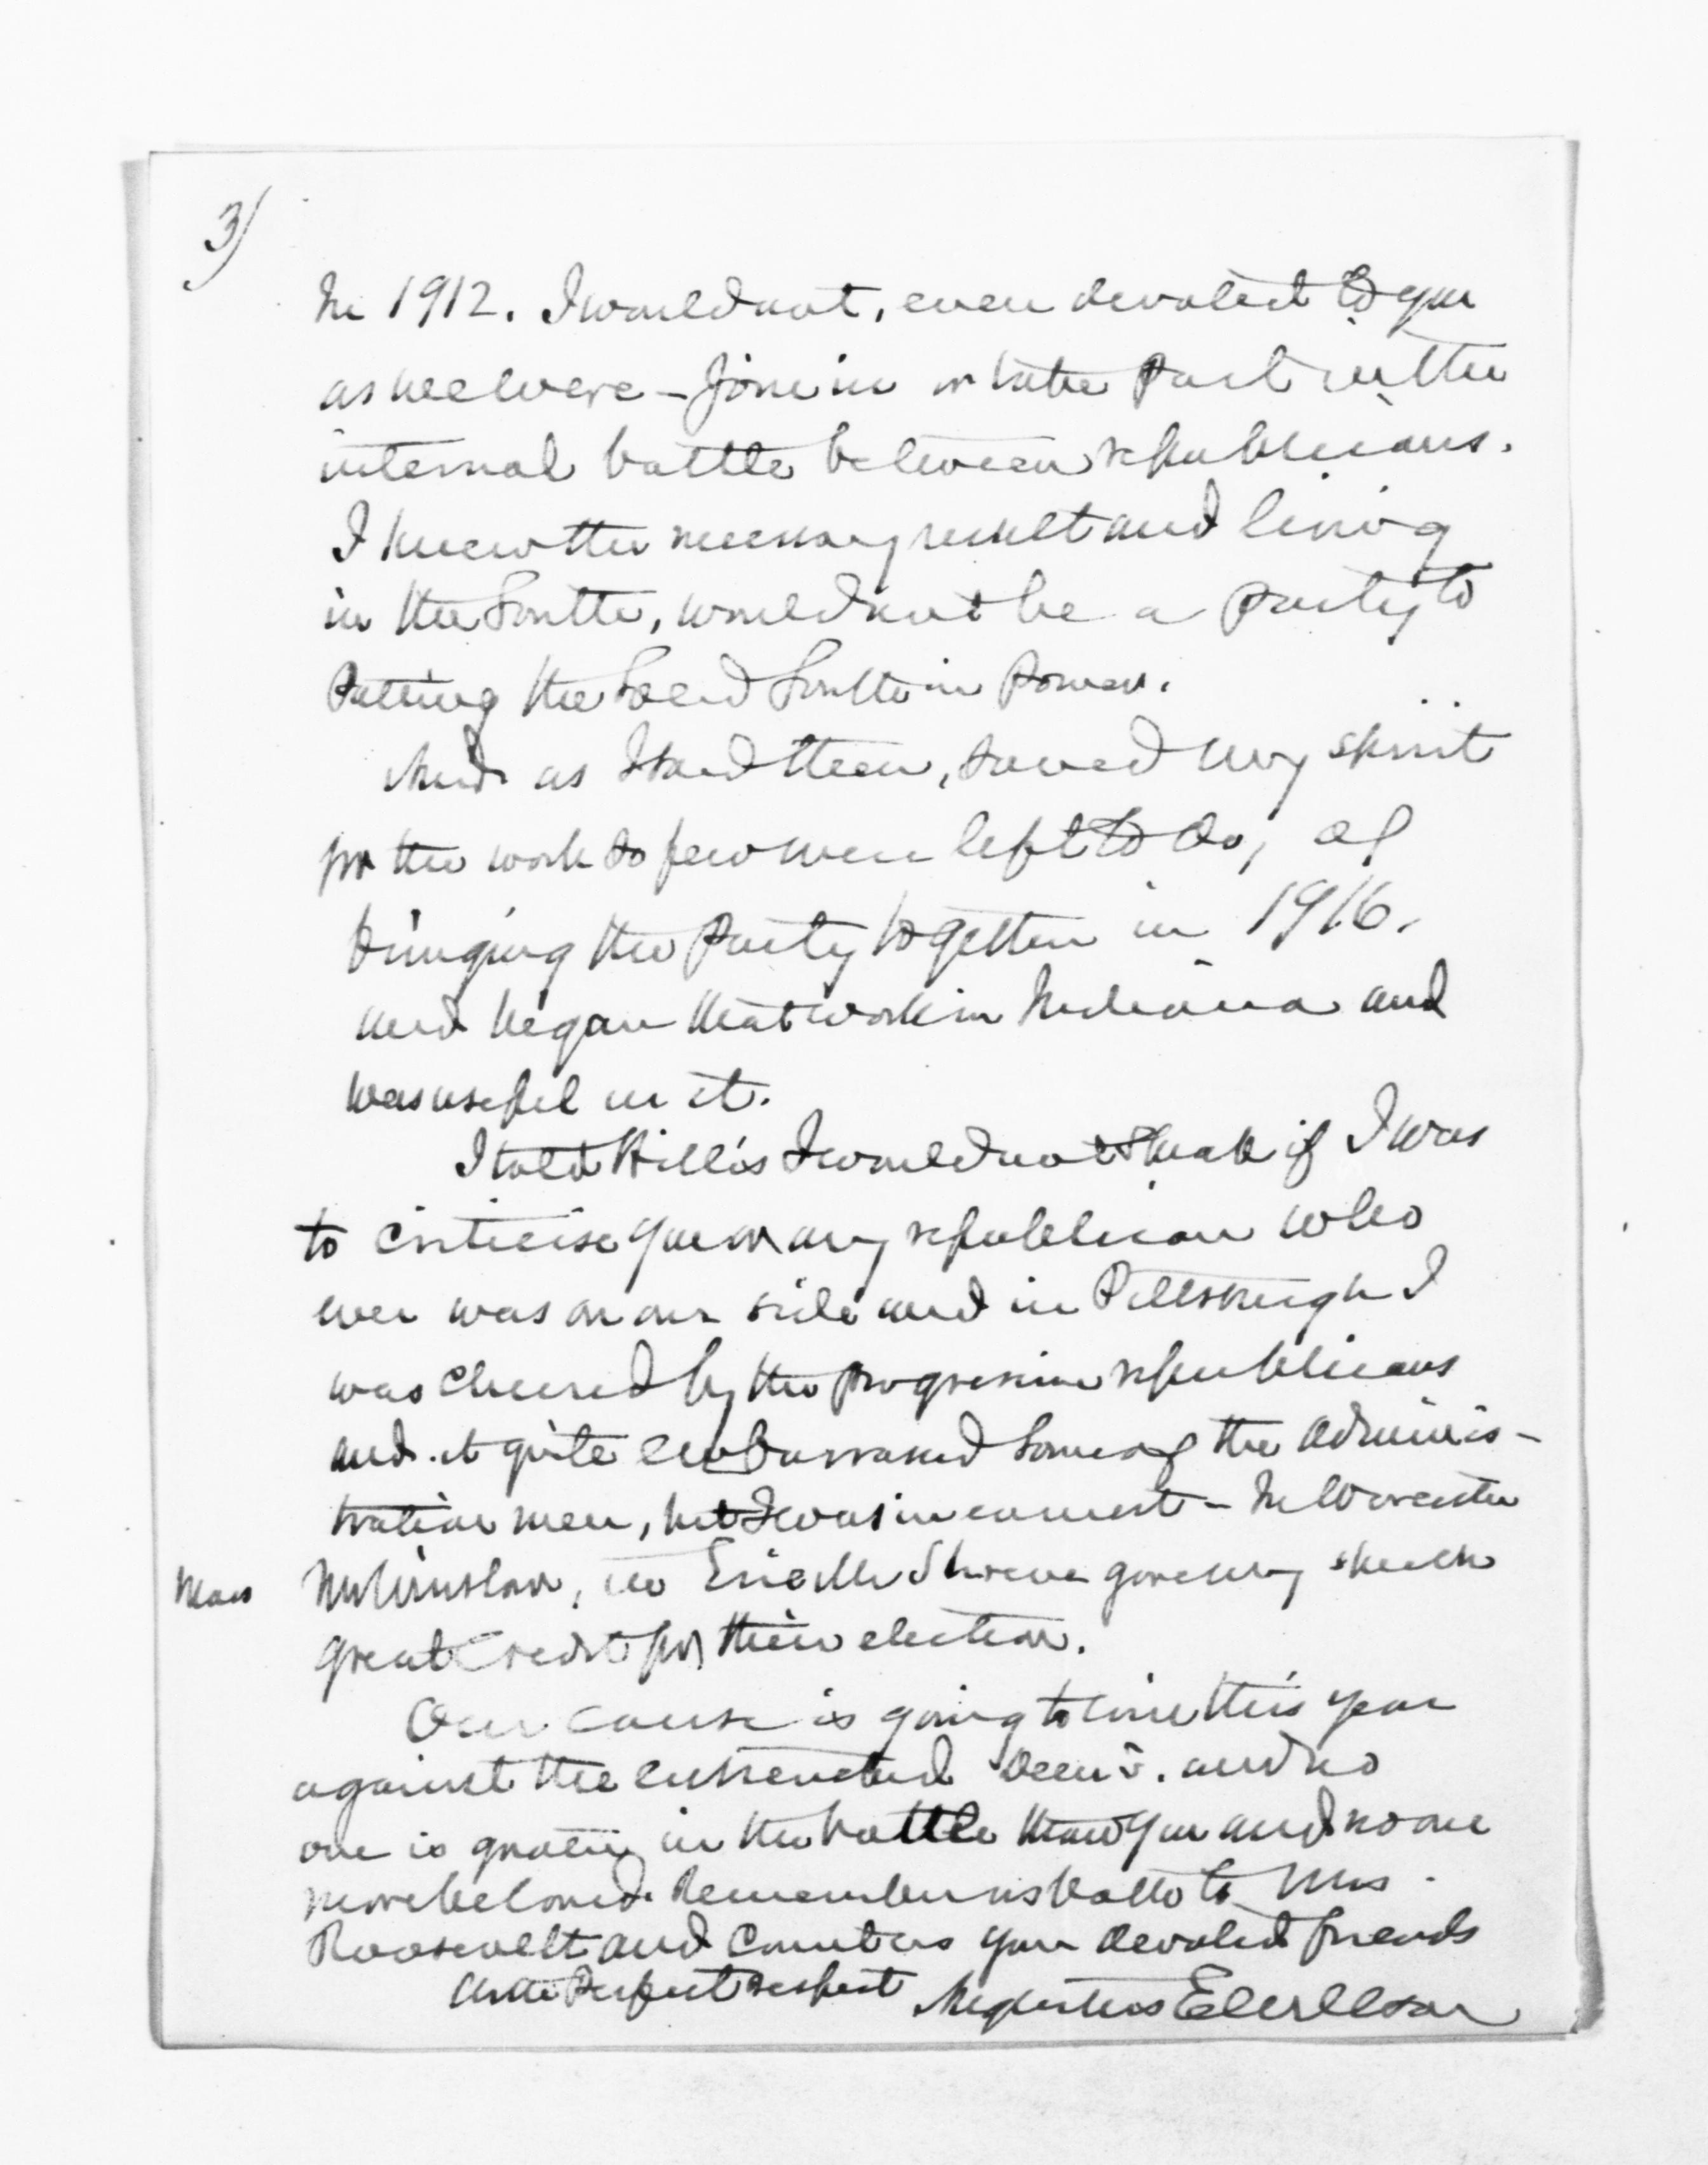 3)
In 1912. I would not, even devoted to you
as we were – join in or take part in the
internal battle between republicans.
I knew the necessary result and living
in the South, would not be a party to
Putting the Solid South in Power.
And as I said then, saved my spirit
for the work so few were left to do, of
bringing the Party together in 1916.
and began that work in Indiana and
was useful in it.
I told Hilles I would not speak if I was
to criticise you or any republican who
ever was on our side and in Pittsburgh I
was cheered by the progressive republicans
and it quite embarrassed some of the Adminis-
tration men, but I was in earnest – In Worcester
Mass Mr Winslow, in Erie Mr Shreve gave my speech
great credit for their election.
Our cause is going to win this year
against the entrenched Dem's. and no
one is greater in the battle than you and no one
more beloved. Remember us both to Mrs.
Roosevelt and count us your devoted friends
With Perfect respect Augustus E Willson